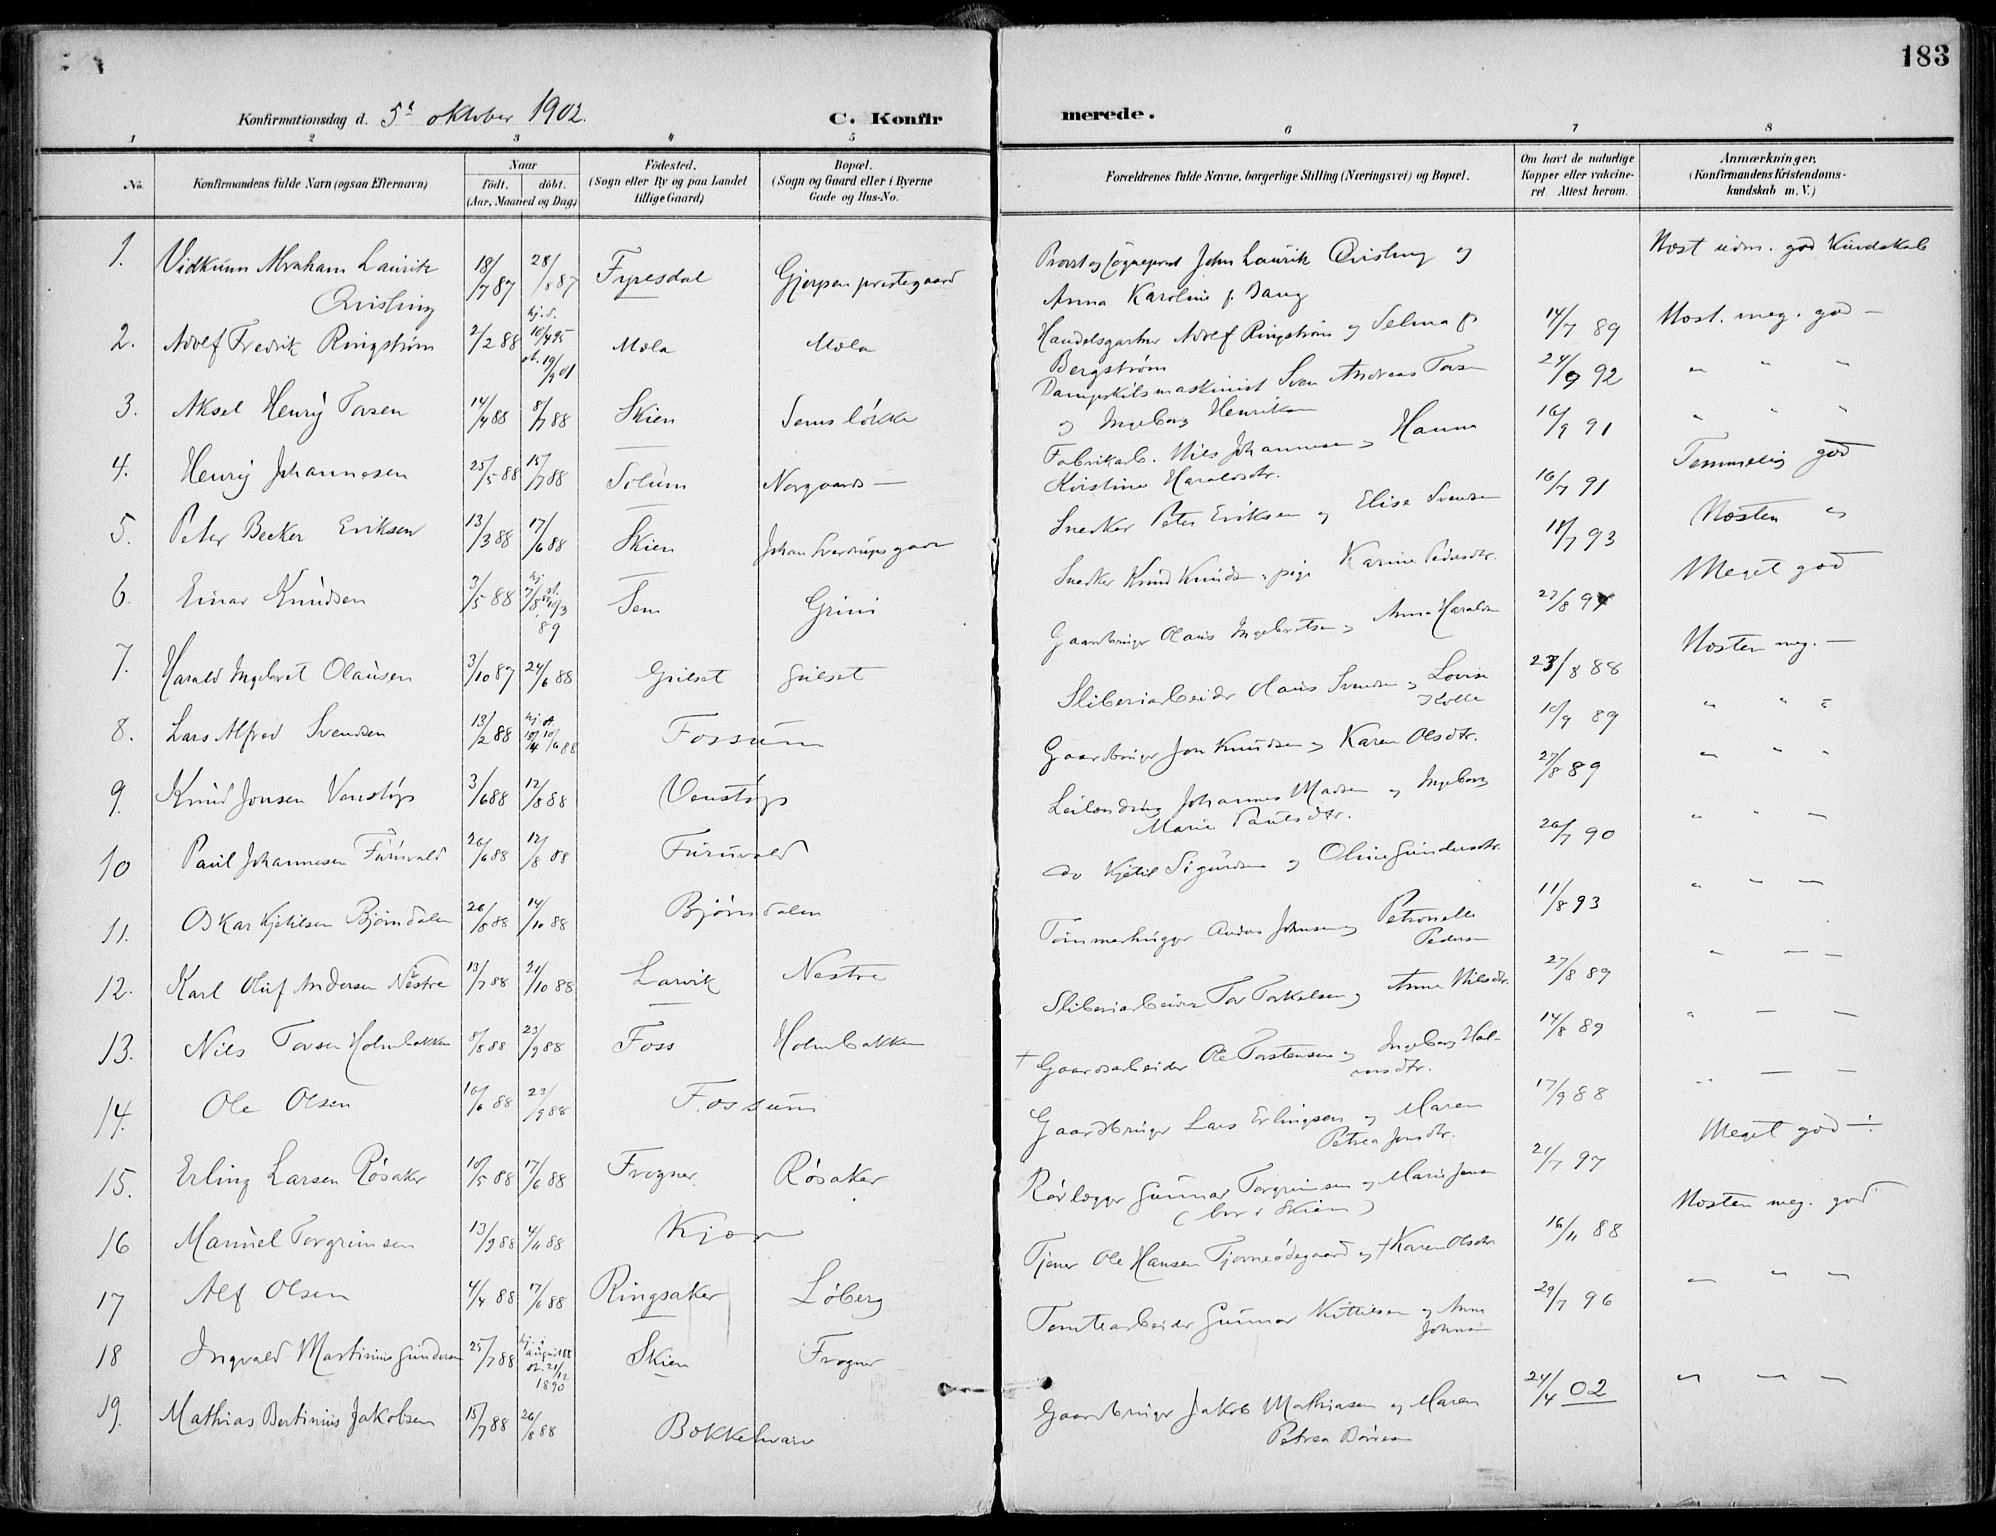 183
Konfirmationsdag d. 5t oktober 1902.
C. Konfir
merede.
1 2 3 4 5 6 7 8
No.
Konfirmandens fulde Navn (ogsaa Efternavn)
Naar
født. døbt.
(Aar, Maaned og Dag)
Fødested.
(Sogn eller By og paa Landet
tillige Gaard)
Bopæl.
(Sogn og Gaard eller i Byerne
Gade og Hus-No.
Forældrenes fulde Navne, borgerlige Stilling (Næringsvei) og Bopæl.
Om havt de naturlige
Kopper eller vakcine-
ret. Attest herom.
Anmærkninger.
(Konfirmandens Kristendoms-
kundskab m. V.)
1. Vidkunn Abraham Lauritz 18/7 87 28/8 87 Fyresdal Gjerpen prestegaard Provst og sogneprest John Laurik Qvisling og Næst udm. god Kundskab
Qvisling Anna Karoline f. Bang
2. Adolf Fredrik Ringstrøm 2/2 88 hj. d. 10/4 95 st. 19/9 01 Mæla Mæla Handelsgartner Adolf Ringstrøm og Selma f. 14/7 89 Næst. meg. god —
Bergstrøm
3. Aksel Henry Torsen 14/4 88 8/7 88 Skien Sems løkke Dampskibsmaskinist Sven Andreas Torsen 24/9 92 " " "
og Ingeborg Henriksen
4. Henry Johannesen 25/5 88 15/7 88 Solum Norgaards — Fabrikarb. Nils Johannesen og Hanna 16/9 91 " " "
Kirstine Haraldsdtr.
5. Peter Becker Eriksen 13/3 88 17/6 88 Skien Johan Sverdrups gade Snedker Peter Eriksen og Elise Svendsen 16/7 91 Temmelig god
6. Einar Knudsen 3/5 88 hj. 7/8 st. 10/3 89 Sem Grini Snedker Knud Knudsen, pige Karine Pedersdtr. 18/7 93 Næsten "
7. Harald Ingebret Olausen 3/10 87 24/6 88 Gulset Gulset Gaardbruger Olaus Ingebretsen og Anna Haralds 27/8 9 Meget god
8. Lars Alfred Svendsen 13/2 88 hj. 10/4 st. 10/6 88 Fossum Sliberiarbeider Olaus Svendsen og Lovise 23/8 88 Næsten meg. —
9. Knud Jonsen Venstøp 3/6 88 12/8 88 Venstøp Gaardbruger Jon Knudsen og Karen Olsdtr. 10/9 89 " " "
10 Paul Johannesen Furuvald 26/6 88 12/8 88 Furuvald Leilænding Johannes Madsen og Ingeborg 27/8 89 " " "
Marie Paulsdtr.
11. Oskar Kjetilsen Bjørndalen 26/8 88 14/10 88 Bjørndalen do Kjetil Sigurdsen og Oline Gundersdtr. 26/7 90 " " —
12. Karl Oluf Andersen Nestre 13/7 88 21/10 88 Larvik Nestre Tømmerhugger Anders Johnsen og Petronelle 11/8 93 " — —
Pedersen
13. Nils Torsen Holmbakken 8/8 88 23/9 88 Foss Holmbakken Sliberiarbeider Tor Torkelsen og Anne Nilsdtr. 27/8 89 " — —
14. Ole Olsen 10/6 88 23/9 88 Fossum † Gaardsarbeider Ole Torstensen og Ingeborg Hal- 14/8 89 " — —
vorsdtr.
15. Erling Larsen Røsaker 10/5 88 17/6 88 Frogner Røsaker Gaardbruger Lars Erlingsen og Maren 17/9 88 " — —
Petrea Jonsdtr.
16 Manuel Torgrimsen 13/9 88 4/11 88 Kjær Rørlægger Gunnar Torgrimsen og Marie Jensen 21/7 97 Meget god —
(bor i Skien)
17 Alf Olsen 4/4 88 17/6 88 Ringsaker Løberg Tjener Ole Hansen Tjærneødegaard og † Karen Olsdtr 16/11 88 Næsten meg. god
18 Ingvald Martinius Gundersen 25/7 88 hj. i august 88 st. 21/12 1890 Skien Frogner Tomtearbeider Gunnar Kittilsen og Anne 29/7 96 — " —
Johnsen
19. Mathias Bertinius Jakobsen 15/7 88 26/8 88 Bøkkelvare Gaardbruger Jakob Mathiasen og Maren 24/4 02 " — —
Petrea